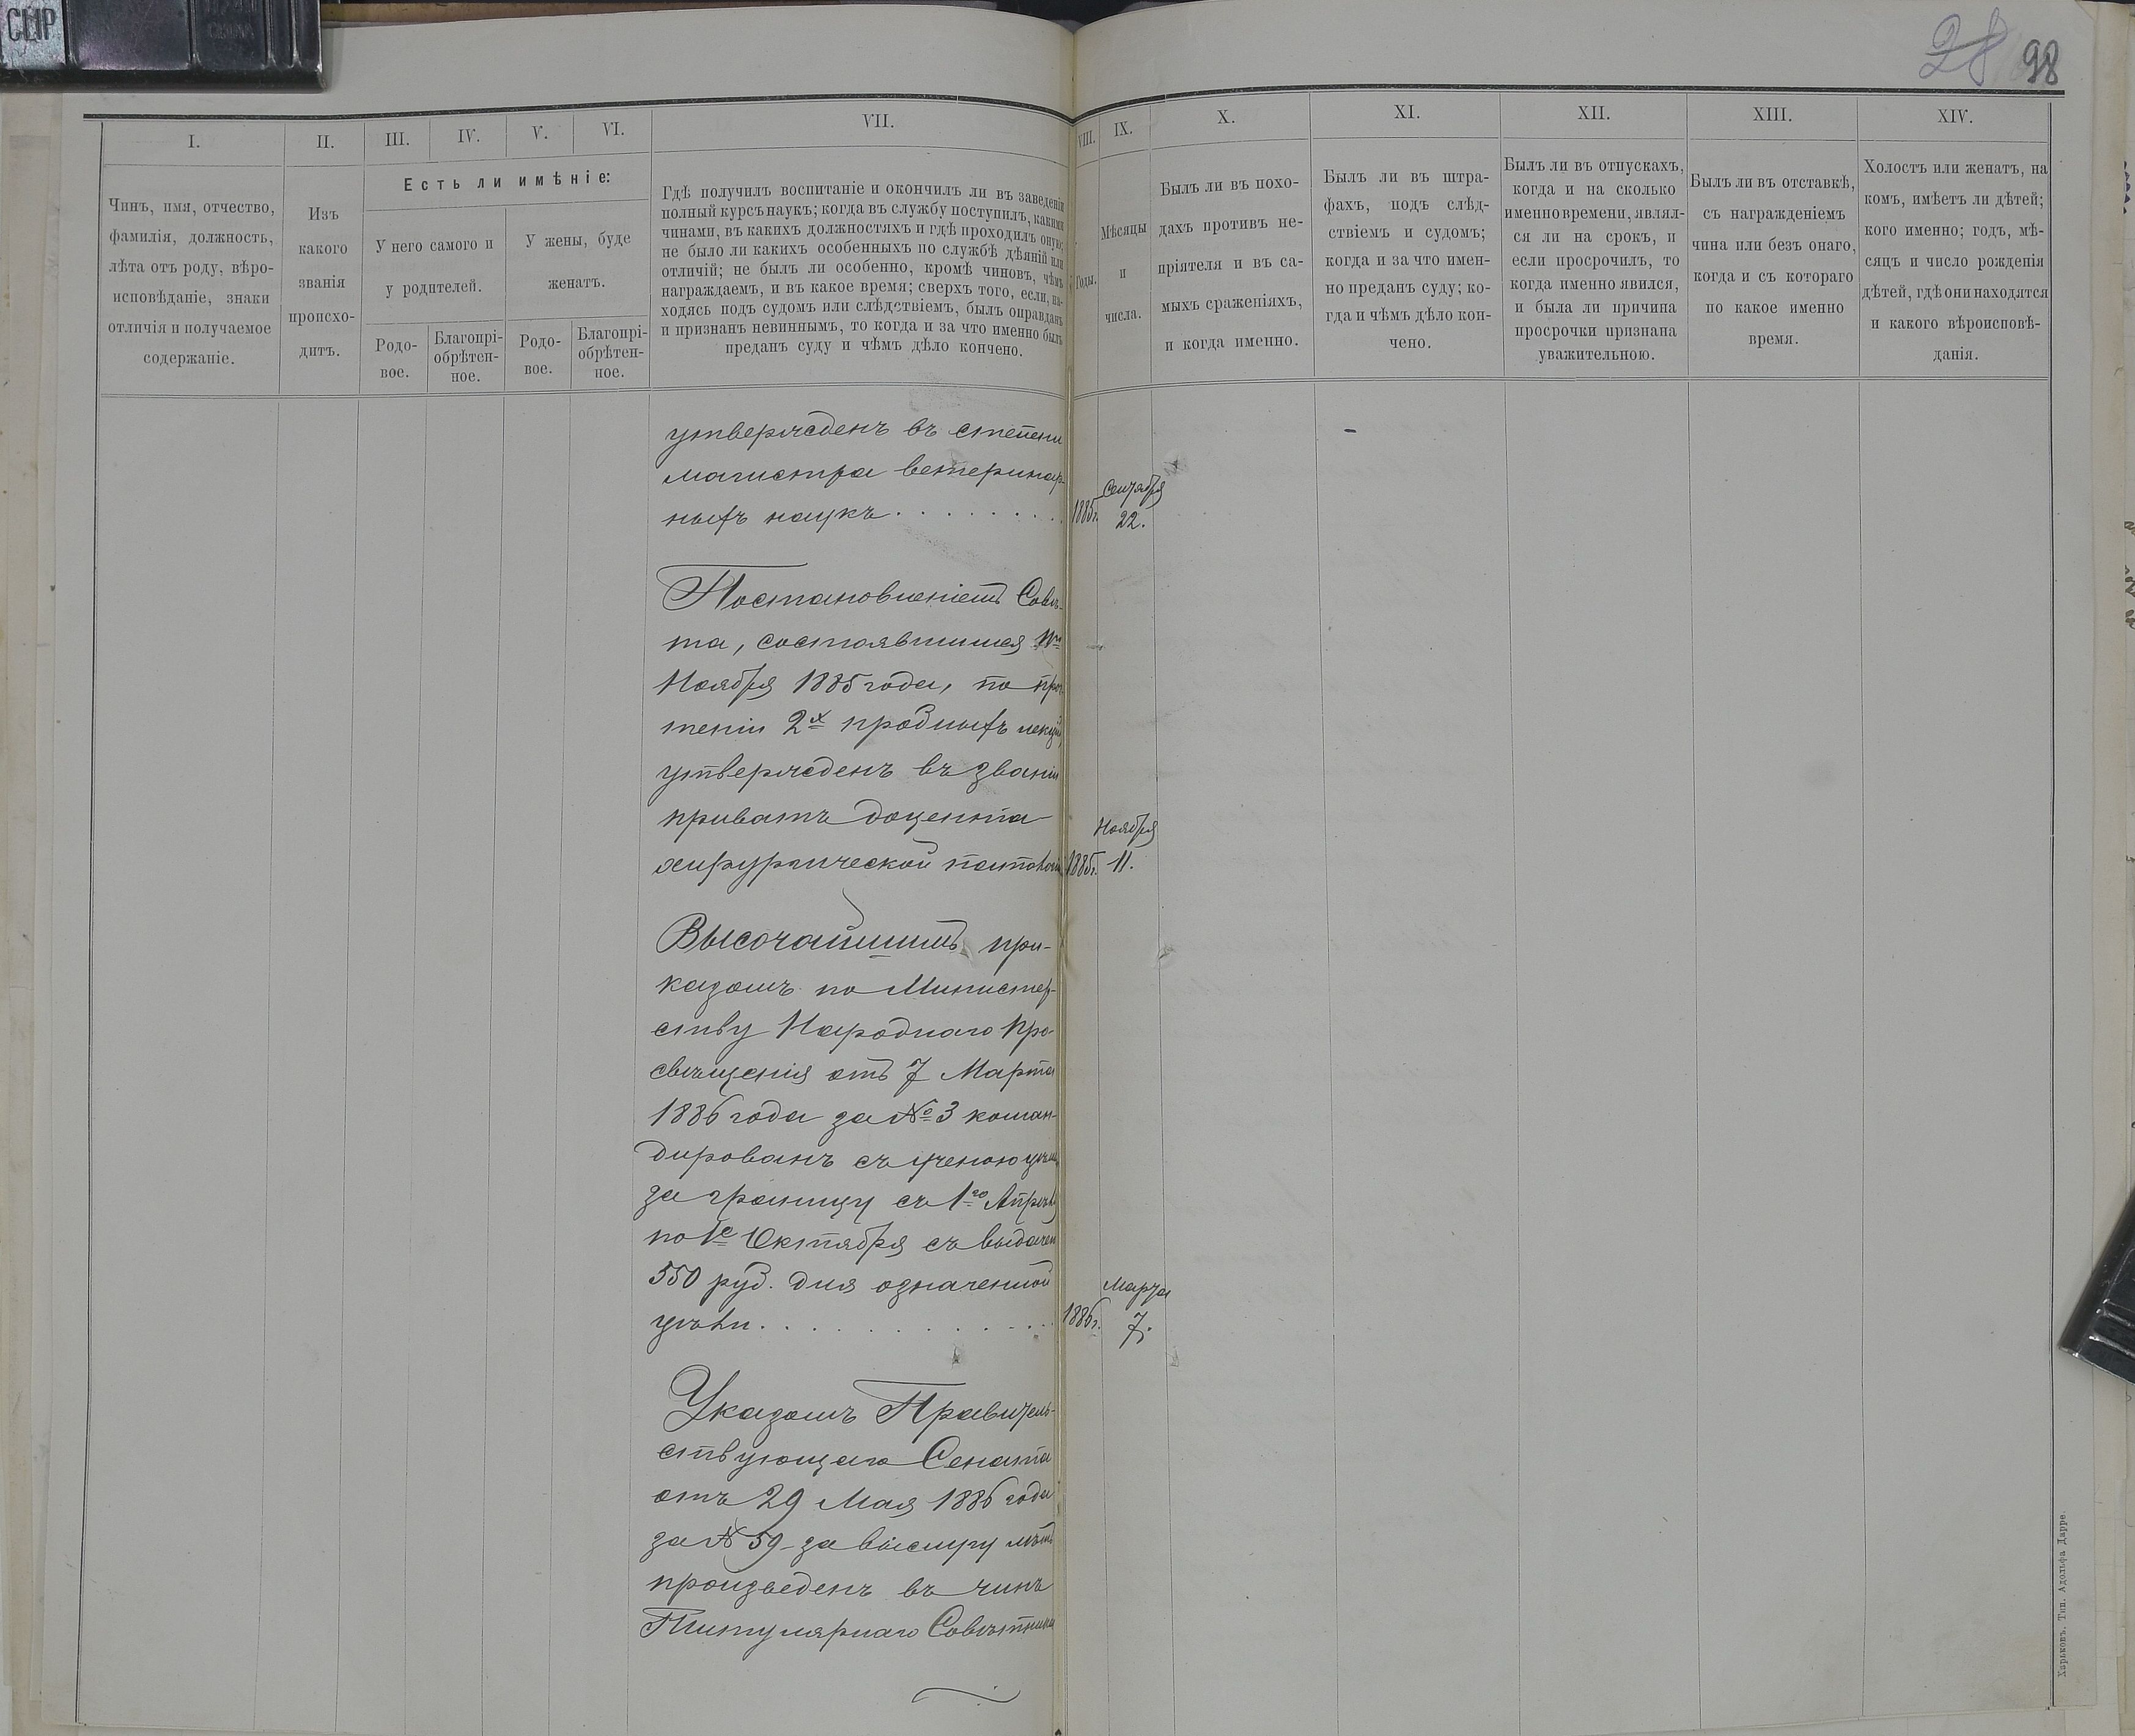 CLIP
28 98
I.
II.
III.
IV.
V.
VI.
VII.
VIII.
IX.
X.
XI.
XII.
XIII.
XIV.
Чинъ, имя, отчество,
фамилія, должность,
лѣта отъ роду, вѣро-
исповѣданіе, знаки
отличія и получаемое
содержаніе.
Изъ
какого
званія
происхо-
дитъ.
Есть ли имѣніе:
У него самого и
у родителей.
У жены, буде
женатъ.
Родо-
вое.
Благопрі-
обрѣтен-
ное.
Родо-
вое.
Благопрі-
обрѣтен-
ное.
Гдѣ получилъ воспитаніе и окончилъ ли въ заведеніи
полный курсъ наукъ; когда въ службу поступилъ, какими
чинами, въ какихъ должностяхъ и гдѣ проходилъ оную;
не было ли какихъ особенныхъ по службѣ дѣяній или
отличій; не былъ ли особенно, кромѣ чиновъ, чѣмъ
награждаемъ, и въ какое время; сверхъ того, если, на-
ходясь подъ судомъ или слѣдствіемъ, былъ оправданъ
и признанъ невиннымъ, то когда и за что именно былъ
преданъ суду и чѣмъ дѣло кончено.
Годы.
Мѣсяцы
и
числа.
Былъ ли въ похо-
дахъ противъ не-
пріятеля и въ са-
мыхъ сраженіяхъ,
и когда именно.
Былъ ли въ штра-
фахъ, подъ слѣд-
ствіемъ и судомъ;
когда и за что имен-
но преданъ суду; ко-
гда и чѣмъ дѣло кон-
чено.
Былъ ли въ отпускахъ,
когда и на сколько
именно времени, являл-
ся ли на срокъ, и
если просрочилъ, то
когда именно явился,
и была ли причина
просрочки признана
уважительною.
Былъ ли въ отставкѣ,
съ награжденіемъ
чина или безъ онаго,
когда и съ котораго
по какое именно
время.
Холостъ или женатъ, на
комъ, имѣетъ ли дѣтей;
кого именно; годъ, мѣ-
сяцъ и число рожденія
дѣтей, гдѣ они находятся
и какого вѣроисповѣ-
данія.
утвержденъ въ степени
магистра ветеринар-
ныхъ наукъ . . . . . . . .
1885г.
Сентября
22.
Постановленіемъ Совѣ-
та, состоявшимся 11го
Ноября 1885 года, по проч-
теніи 2х пробныхъ лекцій,
утвержденъ въ званіи
приватъ доцента
хирургической патологіи
1885г.
Ноября
11.
Высочайшимъ при-
казомъ по Министер-
ству Народнаго Про-
свѣщенія отъ 7 Марта
1886 года за № 3 коман-
дированъ съ ученою цѣлью
за границу съ 1го Апрѣля
по 1е Октября съ выдачею
550 руб. для означенной
цѣли . . . . . . . . . .
1886г.
Марта
7.
Указомъ Правитель-
ствующаго Сената
отъ 29 Мая 1886 года
за № 59 за выслугу лѣтъ
произведенъ въ чинъ
Титулярнаго Совѣтника
Харьковъ. Тип. Адольфа Дарре.